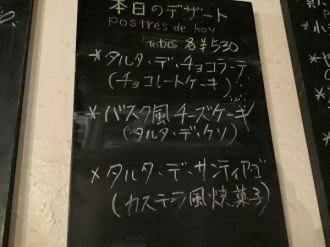 本日のデザート
postres de hoy
各¥530
*タルタ・デ・チョコラーテ
(チョコレートケーキ)
*バスク風チーズケーキ
(タルタ・デ・ケソ)
*タルタ・デ・サンティアゴ
(カステラ風焼菓子)